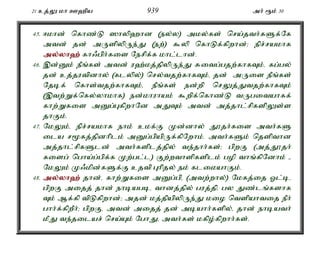 21 உத்லு மா ஊஹிய 939 அர் ரூம் 30
45. ஈமான் கொண்டு ஸாலிஹான (நல்ல) அமல்கள் செய்தவர்களுக்கே அவன் தன் அருளிலிருந்து (நற்) கூலி கொடுக்கிறான்; நிச்சயமாக அல்லாஹ் காஃபிர்களை நேசிக்க மாட்டான்.
46. இன்னும் நீங்கள் அவன் ரஹ்மத்திலிருந்து சுவைப்பதற்காகவும், கப்பல் தன் உத்தரவினால் (கடலில்) செல்வதற்காகவும், தன் அருளை நீங்கள் தேடிக் கொள்வதற்காகவும், நீங்கள் நன்றி செலுத்துவதற்காகவும் (இவற்றுக்கெல்லாமாக) நன்மாராயம் கூறிக்கொண்டு வருபவையாகக் காற்றுகளை அனுப்புகிறானே அதுவும் அவன் அத்தாட்சிகளிலுள்ள தாகும்.
47. மேலும், நிச்சயமாக நாம் உமக்கு முன்னால் தூதர்களை அவர்களு டைய சமூகத்தினரிடம் அனுப்பியிருக்கிறோம். அவர்களும் தெளிவான அத்தாட்சிகளுடன் அவர்களிடத்தில் வந்தார்கள்; பிறகு (அத்தூதர் களைப் பொய்ப்பிக்க முற்பட்ட) குற்றவாளிகளிடம் பழி வாங்கினோம் - மேலும் முஃமின்களுக்கு உதவி புரிதல் நம் கடமையாகும்.
48. அல்லாஹ் தான், காற்றுகளை அனுப்பி, (அவற்றால்) மேகத்தை ஓட்டி, பிறகு அதைத் தான் நாடியபடி, வானத்தில் பரத்தி, பல துண்டங்களாக வும் ஆக்கி விடுகிறான்; அதன் மத்தியிலிருந்து மழை வெளியாவதை நீர் பார்க்கிறீர்; பிறகு, அவன் அதைத் தன் அடியார்களில், தான் நாடியவர் மீது வந்தடையச் செய்யும் போது, அவர்கள் மகிழ்கிறார்கள்.